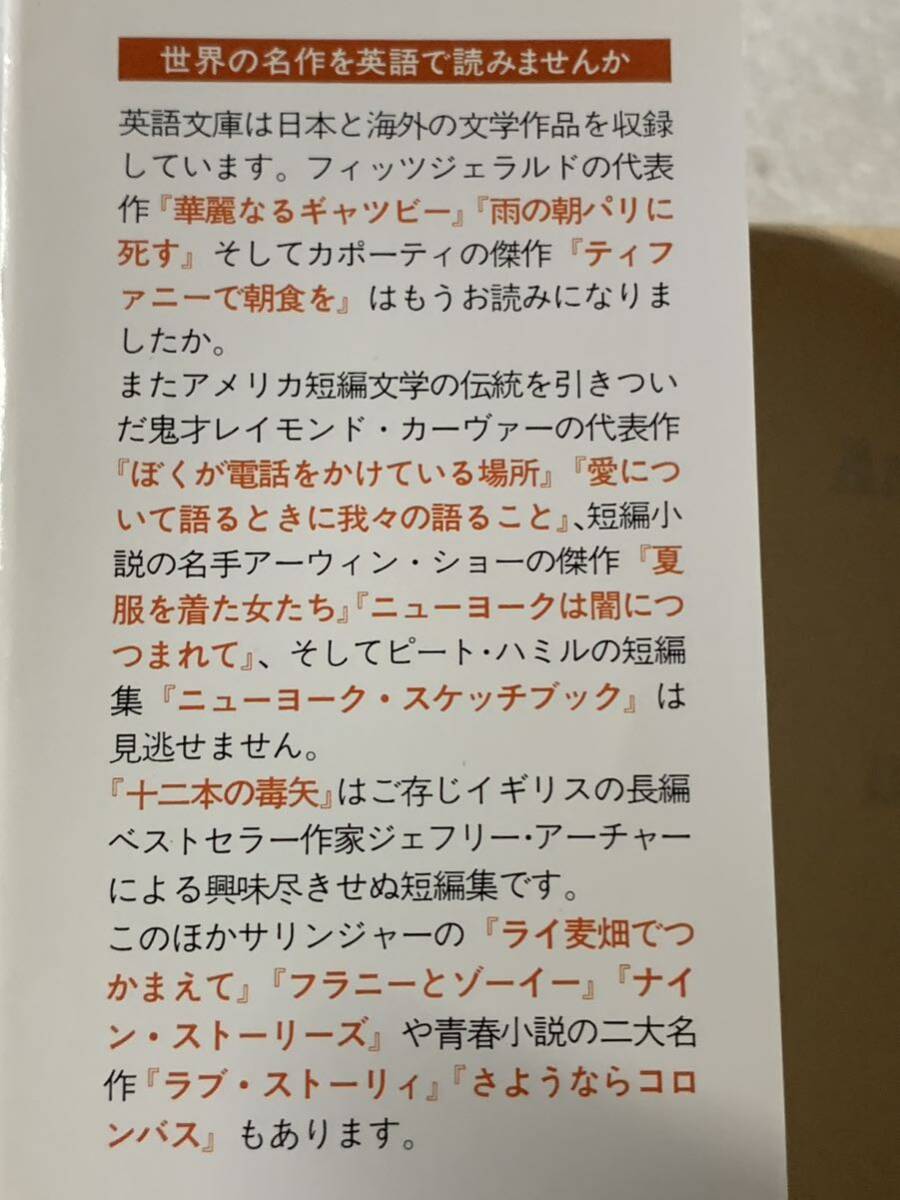 世界の名作を英語で読みませんか
英語文庫は日本と海外の文学作品を収録
しています。フィッツジェラルドの代表
作『華麗なるギャツビー』『雨の朝パリに
死す』そしてカポーティの傑作『ティフ
ァニーで朝食を』はもうお読みになりま
したか。
またアメリカ短編文学の伝統を引きつい
だ鬼才レイモンド・カーヴァーの代表作
『ぼくが電話をかけている場所』『愛につ
いて語るときに我々の語ること』、短編小
説の名手アーウィン・ショーの傑作『夏
服を着た女たち』『ニューヨークは闇につ
つまれて』、そしてピート・ハミルの短編
集『ニューヨーク・スケッチブック』は
見逃せません。
『十二本の毒矢』はご存じイギリスの長編
ベストセラー作家ジェフリー・アーチャー
による興味尽きせぬ短編集です。
このほかサリンジャーの『ライ麦畑でつ
かまえて』『フラニーとゾーイー』『ナイ
ン・ストーリーズ』や青春小説の二大名
作『ラブ・ストーリィ』『さようならコロ
ンバス』もあります。